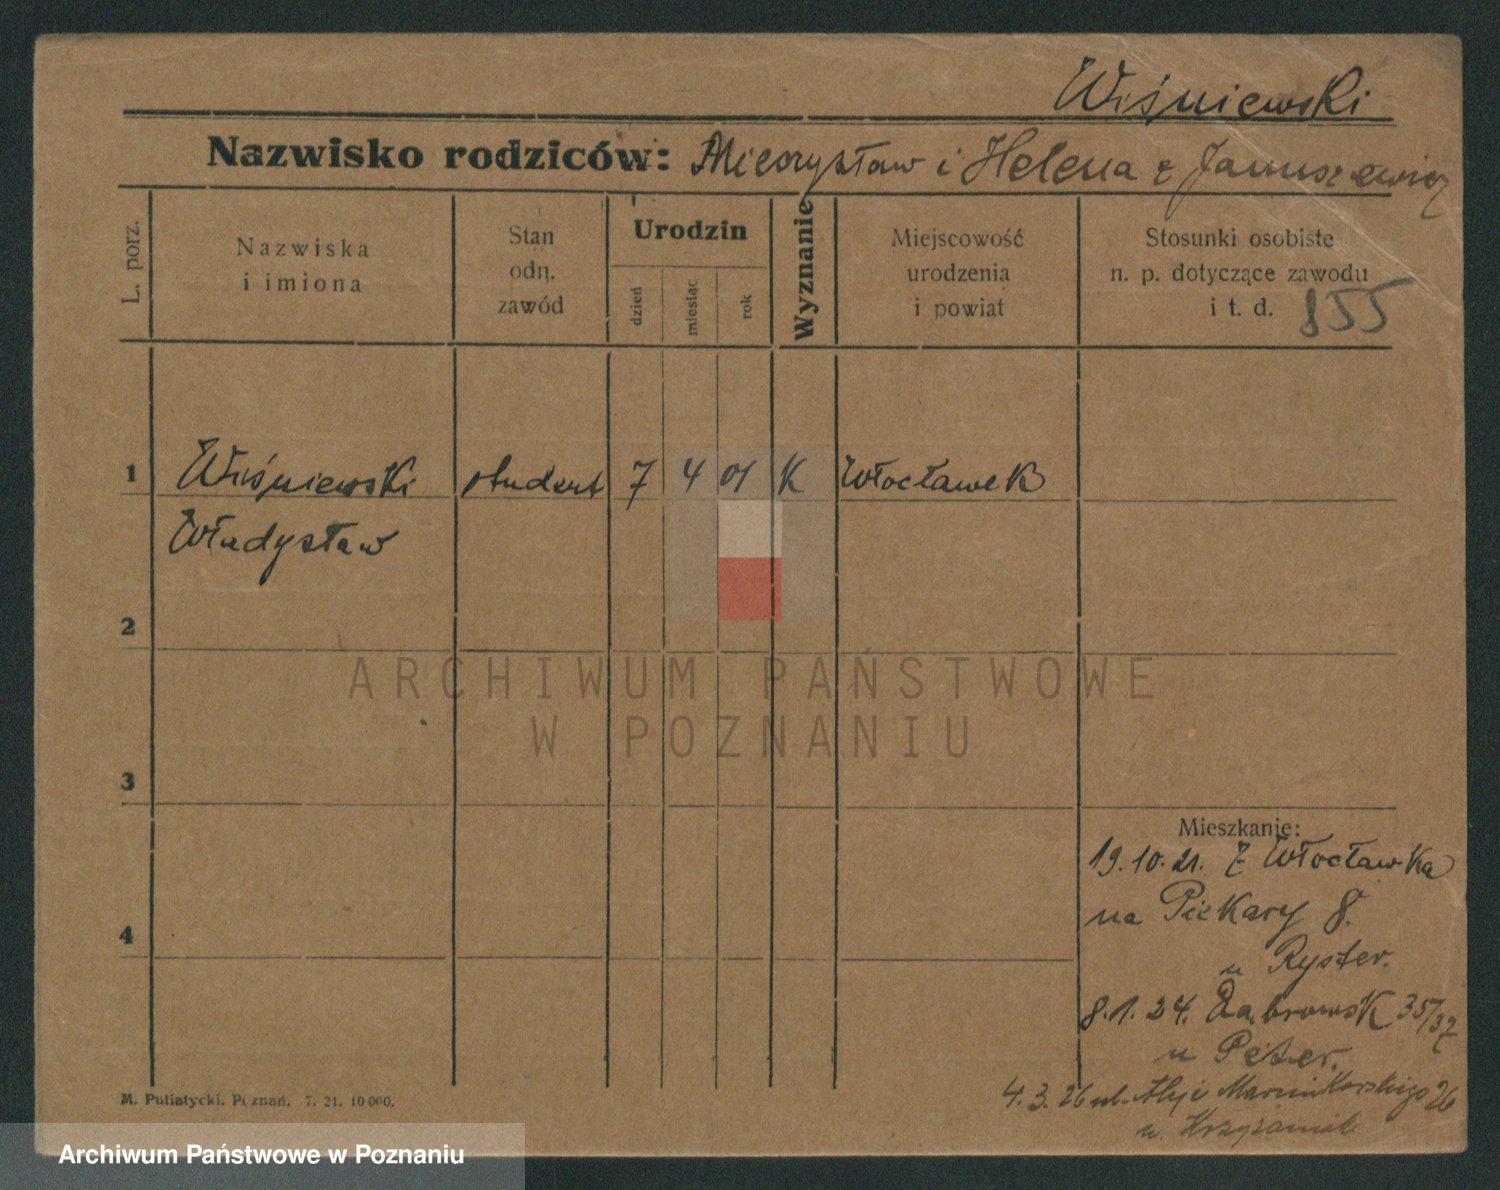 Wiśniewski
Nazwisko rodziców: Mieczysław i Helena z Januszewicz
L. porz.
Nazwiska
i imiona
Stan
odn.
zawód
Urodzin
dzień
miesiąc
rok
Wyznanie
Miejscowość
urodzenia
i powiat
Stosunki osobiste
n. p. dotyczące zawodu
i t. d. 855
1 Wiśniewski student 7 4 01 K Włocławek
Władysław
2
ARCHIWUM PAŃSTWOWE
W POZNANIU
3
Mieszkanie:
19.10.21. Z Włocławka
na Piekary 8.
u Ryster.
4
8.1.24. Dąbrowsk 35/37
u Peter.
4.3.26 ul. Alji Marcinkorskiego 26
u. Krzyżaniak
M. Putiatycki. Poznań. 7. 21. 10 000.
Archiwum Państwowe w Poznaniu